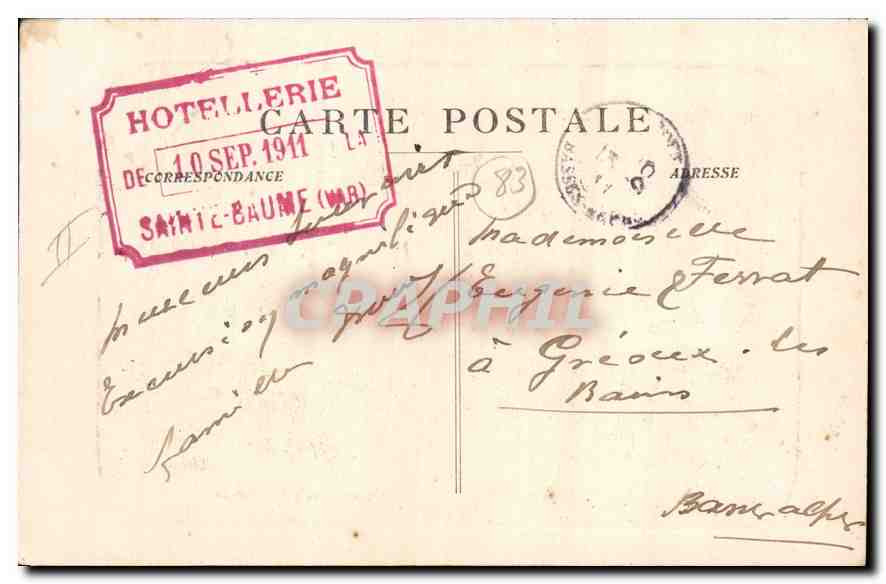 HOTELLERIE
DE 10 SEP. 1911 LA
SAINTE-BAUME (VAR)
CARTE POSTALE
CORRESPONDANCE
ADRESSE
83
II
CPAPHIL
Excursion magnifique
famille
Mademoiselle
Eugenie Ferrat
à Gréoux-les
Bains
Basses alpes